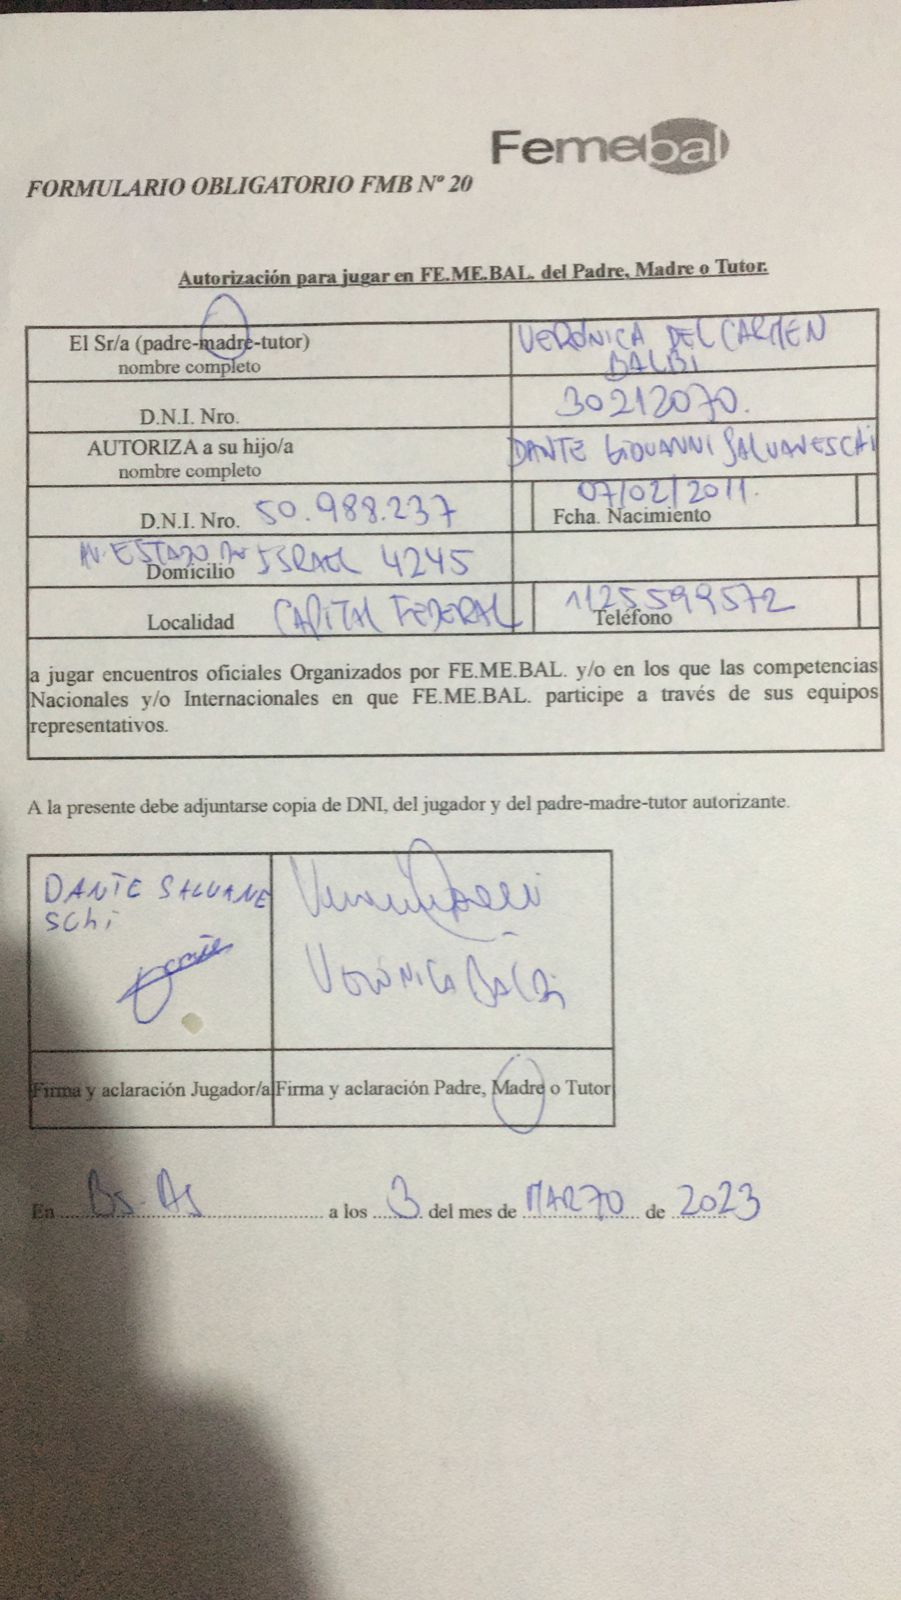 Femebal
FORMULARIO OBLIGATORIO FMB Nº 20
Autorización para jugar en FE.ME.BAL. del Padre, Madre o Tutor.
El Sr/a (padre-madre-tutor)
nombre completo
VERÓNICA DEL CARMEN
BALBI
D.N.I. Nro.
30212070.
AUTORIZA a su hijo/a
nombre completo
DANTE GIOVANNI SALVANESCHI
D.N.I. Nro. 50.988.237
07/02/2011.
Fcha. Nacimiento
AV. ESTADO DE ISRAEL 4245
Domicilio
Localidad CAPITAL FEDERAL
1125599572
Teléfono
a jugar encuentros oficiales Organizados por FE.ME.BAL. y/o en los que las competencias
Nacionales y/o Internacionales en que FE.ME.BAL. participe a través de sus equipos
representativos.
A la presente debe adjuntarse copia de DNI, del jugador y del padre-madre-tutor autorizante.
DANTE SALVANE
SCHI
VERÓNICA BALBI
Firma y aclaración Jugador/a
Firma y aclaración Padre, Madre o Tutor
En Bs. As a los 3 del mes de MARZO de 2023